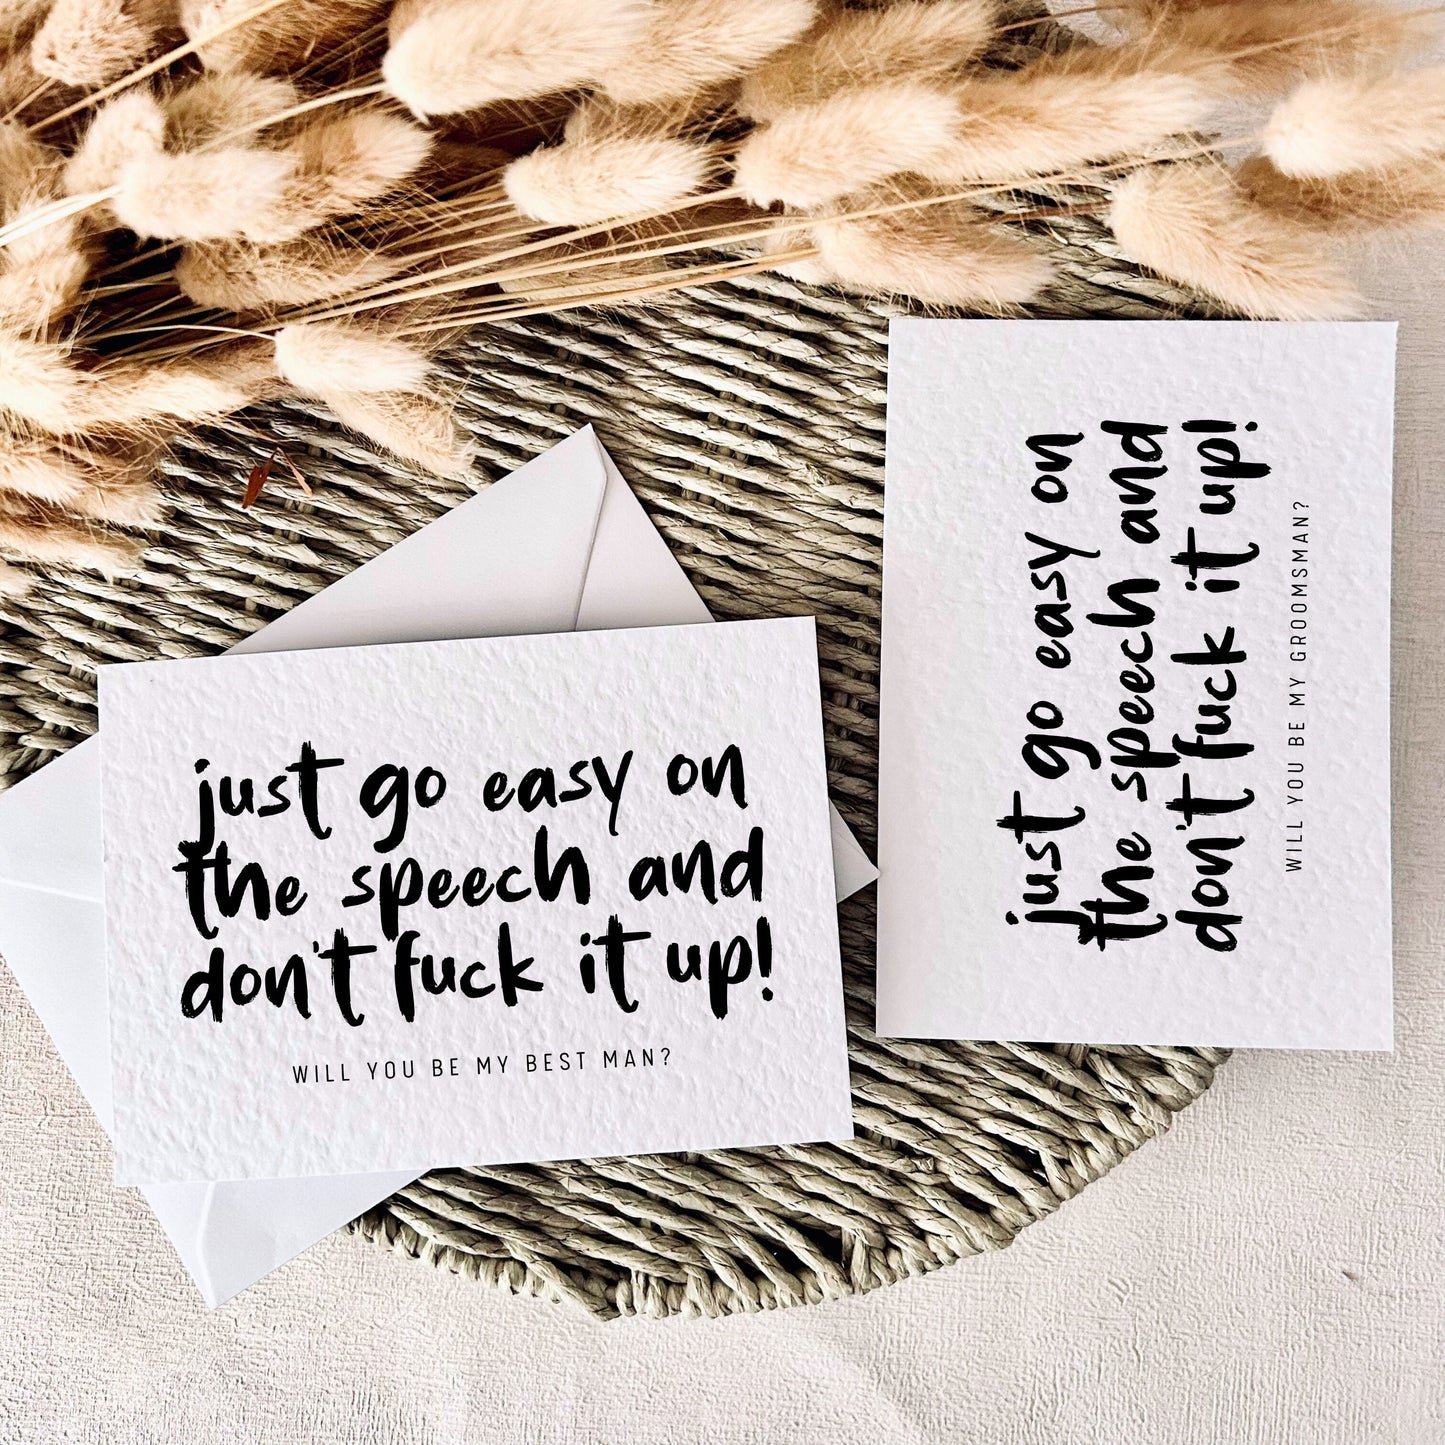 just go easy on
the speech and
don't fuck it up!
WILL YOU BE MY BEST MAN?
just go easy on
the speech and
don't fuck it up!
WILL YOU BE MY GROOMSMAN?